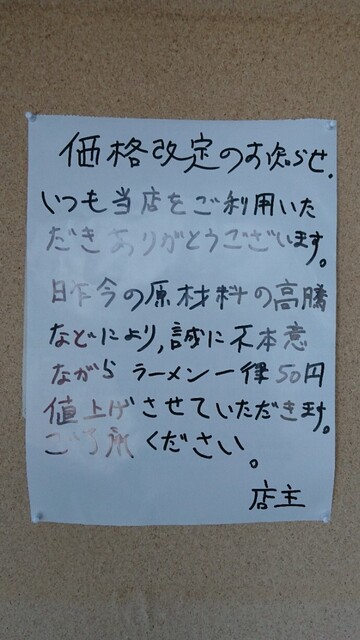 価格改定のお知らせ.
いつも当店をご利用いた
だきありがとうございます。
昨今の原材料の高騰
などにより,誠に不本意
ながら ラーメン一律50円
値上げさせていただきます。
ご了承ください。
店主